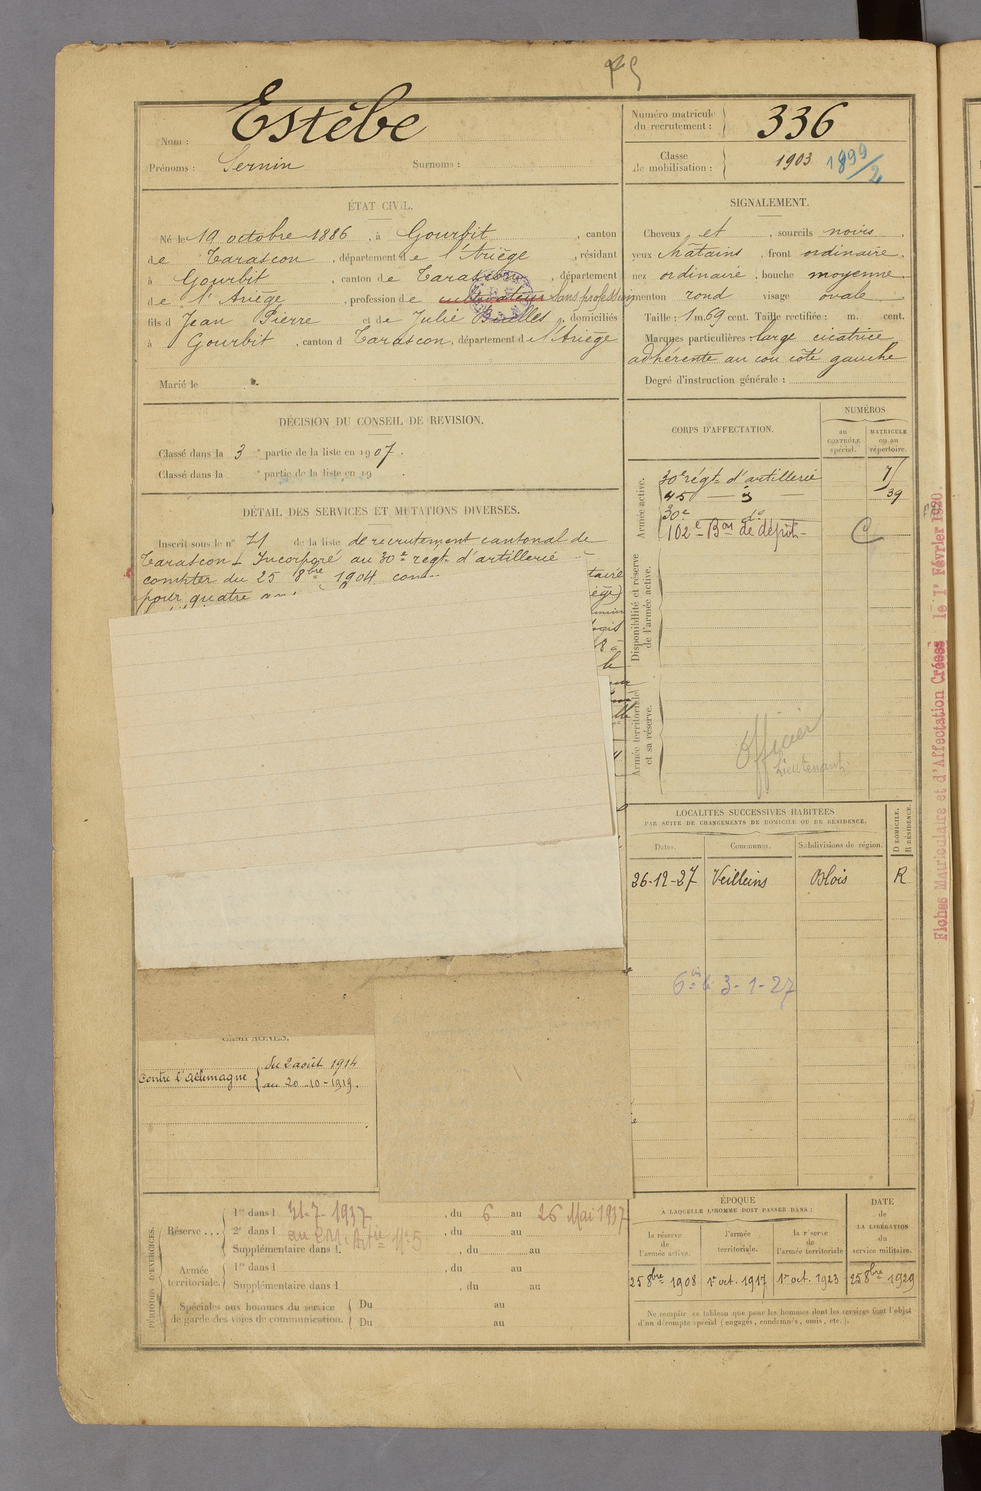 Nom : Estèbe
Prénoms : Sernin Surnoms :
Numéro matricule du recrutement : 336
Classe de mobilisation : 1903 1899/2
ÉTAT CIVIL.
Né le 19 octobre 1886, à Gourbit, canton
de Tarascon, département de l'Ariège, résidant
à Gourbit, canton de Tarascon, département
de l'Ariège, profession de cultivateur sans profession
fils d Jean Pierre et de Julie, domiciliés
à Gourbit, canton d Tarascon, département d e l'Ariège
Marié le
SIGNALEMENT.
Cheveux et, sourcils noirs
yeux châtains, front ordinaire
nez ordinaire, bouche moyenne
menton rond visage ovale
Taille : 1 m. 69 cent. Taille rectifiée : m. cent.
Marques particulières : large cicatrice
adhérente au cou côté gauche
Degré d'instruction générale :
DÉCISION DU CONSEIL DE REVISION.
Classé dans la 3e partie de la liste en 1907.
Classé dans la e partie de la liste en 19
DÉTAIL DES SERVICES ET MUTATIONS DIVERSES.
Inscrit sous le n° 71 de la liste de recrutement cantonal de
Tarascon Incorporé au 30e regt d'artillerie
compter du 25 8bre 1904
pour quatre
CORPS D'AFFECTATION.
NUMÉROS
au CONTRÔLE spécial.
MATRICULE ou au répertoire.
Armée active.
30e régt d'artillerie 7
45 — 39
30e do
102e Bon de dépôt C
Disponibilité et réserve de l'armée active.
Armée territoriale et sa réserve.
Officier
Lieutenant
LOCALITÉS SUCCESSIVES HABITÉES
PAR SUITE DE CHANGEMENTS DE DOMICILE OU DE RÉSIDENCE.
Dates. Communes. Subdivisions de région. D DOMICILE. R RÉSIDENCE.
26-12-27 Veilleins Blois R
3-1-27
CAMPAGNES.
Contre l'Allemagne { du 2 août 1914
au 20-10-1919.
PÉRIODES D'EXERCICES.
Réserve ... 1re dans l 21-7-1937, du 6 au 26 Mai 1937
2e dans l, du au
Supplémentaire dans l, du au
Armée territoriale. 1re dans l, du au
Supplémentaire dans l, du au
Spéciales aux hommes du service de garde des voies de communication. { Du au
Du au
ÉPOQUE
À LAQUELLE L'HOMME DOIT PASSER DANS :
la réserve de l'armée active. l'armée territoriale. la réserve de l'armée territoriale
DATE de LA LIBÉRATION du service militaire.
25 8bre 1908 1er oct. 1917 1er oct. 1923 25 8bre 1929
Ne remplir ce tableau que pour les hommes dont les services font l'objet
d'un décompte spécial (engagés, condamnés, omis, etc.).
Fiches Matriculaire et d'Affectation Créées le 1r Février 1920.